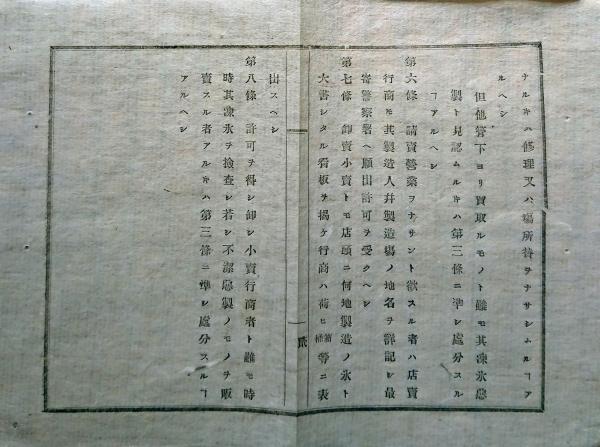 ナルキハ修理又ハ塲所替ヲナサシムルヿア
ルヘシ
但他管下ヨリ買取ルモノト雖モ其凍氷惡
製ト見認ムルキハ第三條ニ準シ處分スル
ヿアルヘシ
第六條 請賣營業ヲナサント欲スル者ハ店賣
行商モ其製造人幷製造塲ノ地名ヲ詳記シ最
寄警察署ヘ願出許可ヲ受クヘシ
第七條 卸賣小賣トモ店頭ニ何地製造ノ氷ト
大書シタル看板ヲ揭ケ行商ハ荷ヒ箱桶等ニ表
出スヘシ
第八條 許可ヲ得シ卸シ小賣行商者ト雖モ時
時其凍氷ヲ撿查シ若シ不潔惡製ノモノヲ販
賣スル者アルキハ第三條ニ準シ處分スルヿ
アルヘシ